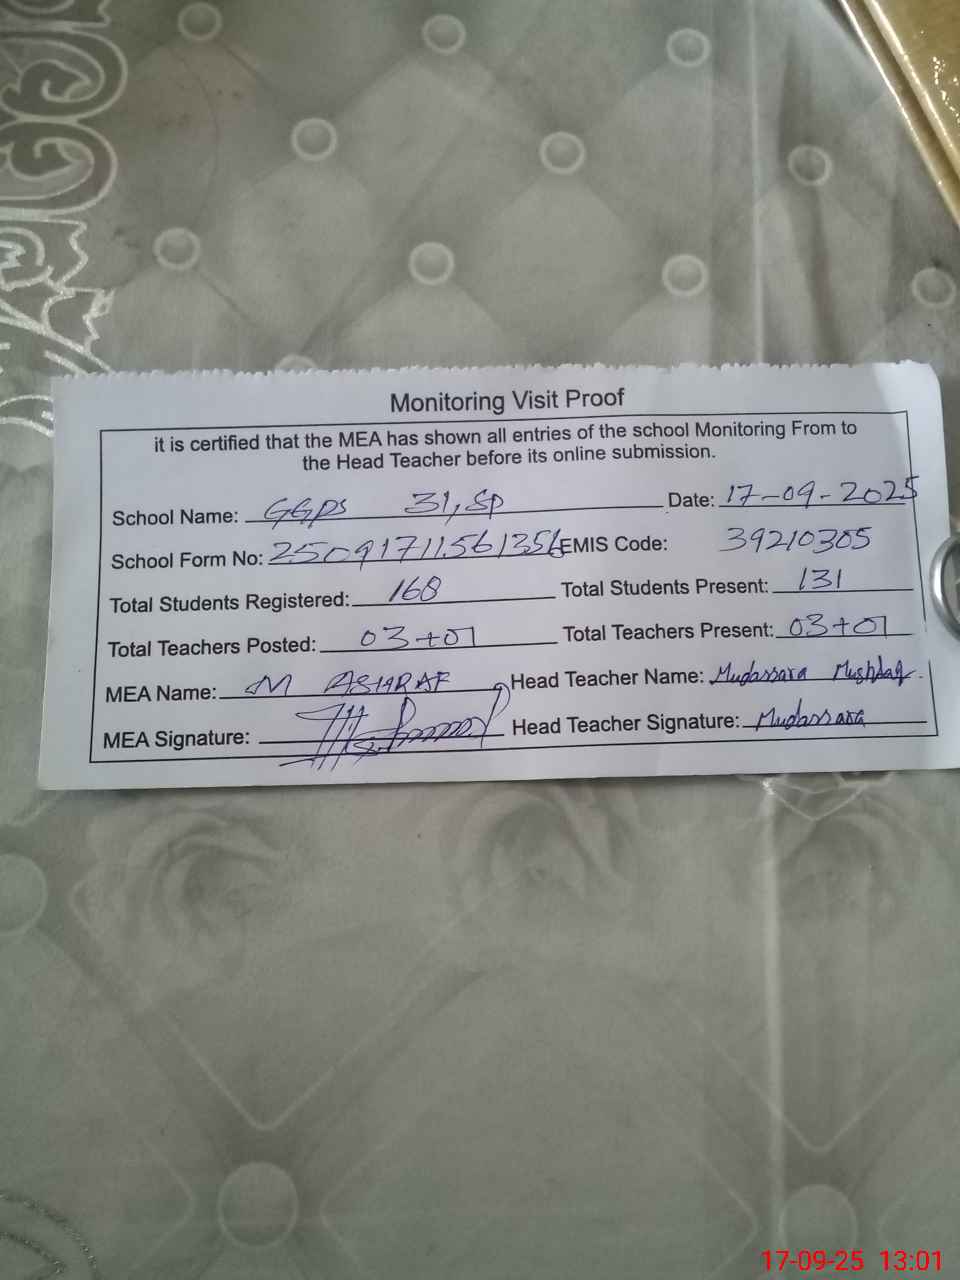 Monitoring Visit Proof
it is certified that the MEA has shown all entries of the school Monitoring From to
the Head Teacher before its online submission.
School Name: GGPS 31, SP Date: 17-09-2025
School Form No: 25091711561356 EMIS Code: 39210305
Total Students Registered: 168 Total Students Present: 131
Total Teachers Posted: 03+01 Total Teachers Present: 03+01
MEA Name: M ASHRAF Head Teacher Name: Mudassara Mushtaq.
MEA Signature: Head Teacher Signature: Mudassara
17-09-25 13:01